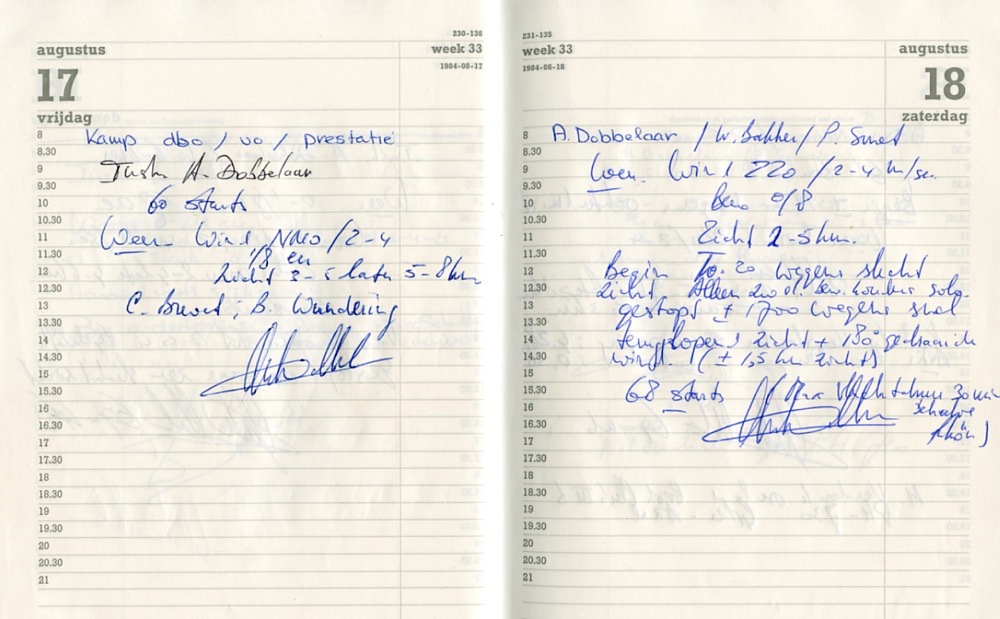 230-136
augustus
week 33
17
1984-08-17
vrijdag
8 Kamp dbo / vo / prestatie
8.30
9 A. Dobbelaar
9.30
10 60 starts
10.30
11 Weer Wind NNO / 2-4
11.30 1/8 en
12 Zicht 3-5 later 5-8 km
12.30
13 C. Brevet; B.
13.30
14
14.30
15
15.30
16
16.30
17
17.30
18
18.30
19
19.30
20
20.30
21
231-135
week 33
augustus
1984-08-18
18
zaterdag
8 A. Dobbelaar / W. Bakker / P. Smet
8.30
9 Weer. Wind 220 / 2-4 m/sec.
9.30
10 0/8
10.30
11 Zicht 2-5 km.
11.30
12 Begin 10.20 wegens slecht
12.30 zicht. Alleen solo
13 gestopt ± 1700 wegens snel
13.30
14 teruglopend zicht + 180° gedraaide
14.30 wind. (± 1,5 km zicht)
15
15.30 68 starts 30 min
16
16.30
17
17.30
18
18.30
19
19.30
20
20.30
21